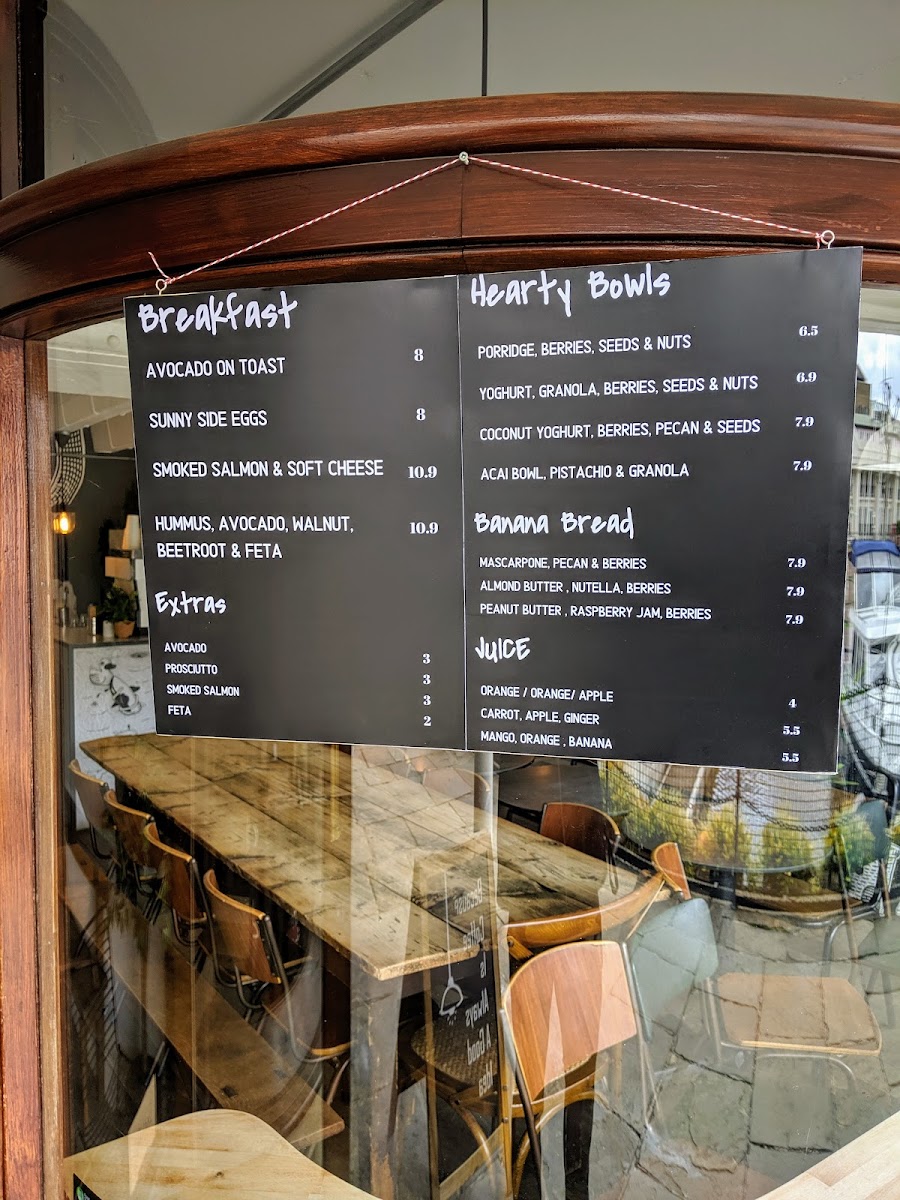 Breakfast
AVOCADO ON TOAST 8
SUNNY SIDE EGGS 8
SMOKED SALMON & SOFT CHEESE 10.9
HUMMUS, AVOCADO, WALNUT, 10.9
BEETROOT & FETA
Extras
AVOCADO 3
PROSCIUTTO 3
SMOKED SALMON 3
FETA 2
Hearty Bowls
PORRIDGE, BERRIES, SEEDS & NUTS 6.5
YOGHURT, GRANOLA, BERRIES, SEEDS & NUTS 6.9
COCONUT YOGHURT, BERRIES, PECAN & SEEDS 7.9
ACAI BOWL, PISTACHIO & GRANOLA 7.9
Banana Bread
MASCARPONE, PECAN & BERRIES 7.9
ALMOND BUTTER , NUTELLA, BERRIES 7.9
PEANUT BUTTER , RASPBERRY JAM, BERRIES 7.9
JUICE
ORANGE / ORANGE/ APPLE 4
CARROT, APPLE, GINGER 5.5
MANGO, ORANGE , BANANA 5.5
Because
Coffee
Is
Always
A Good
Idea